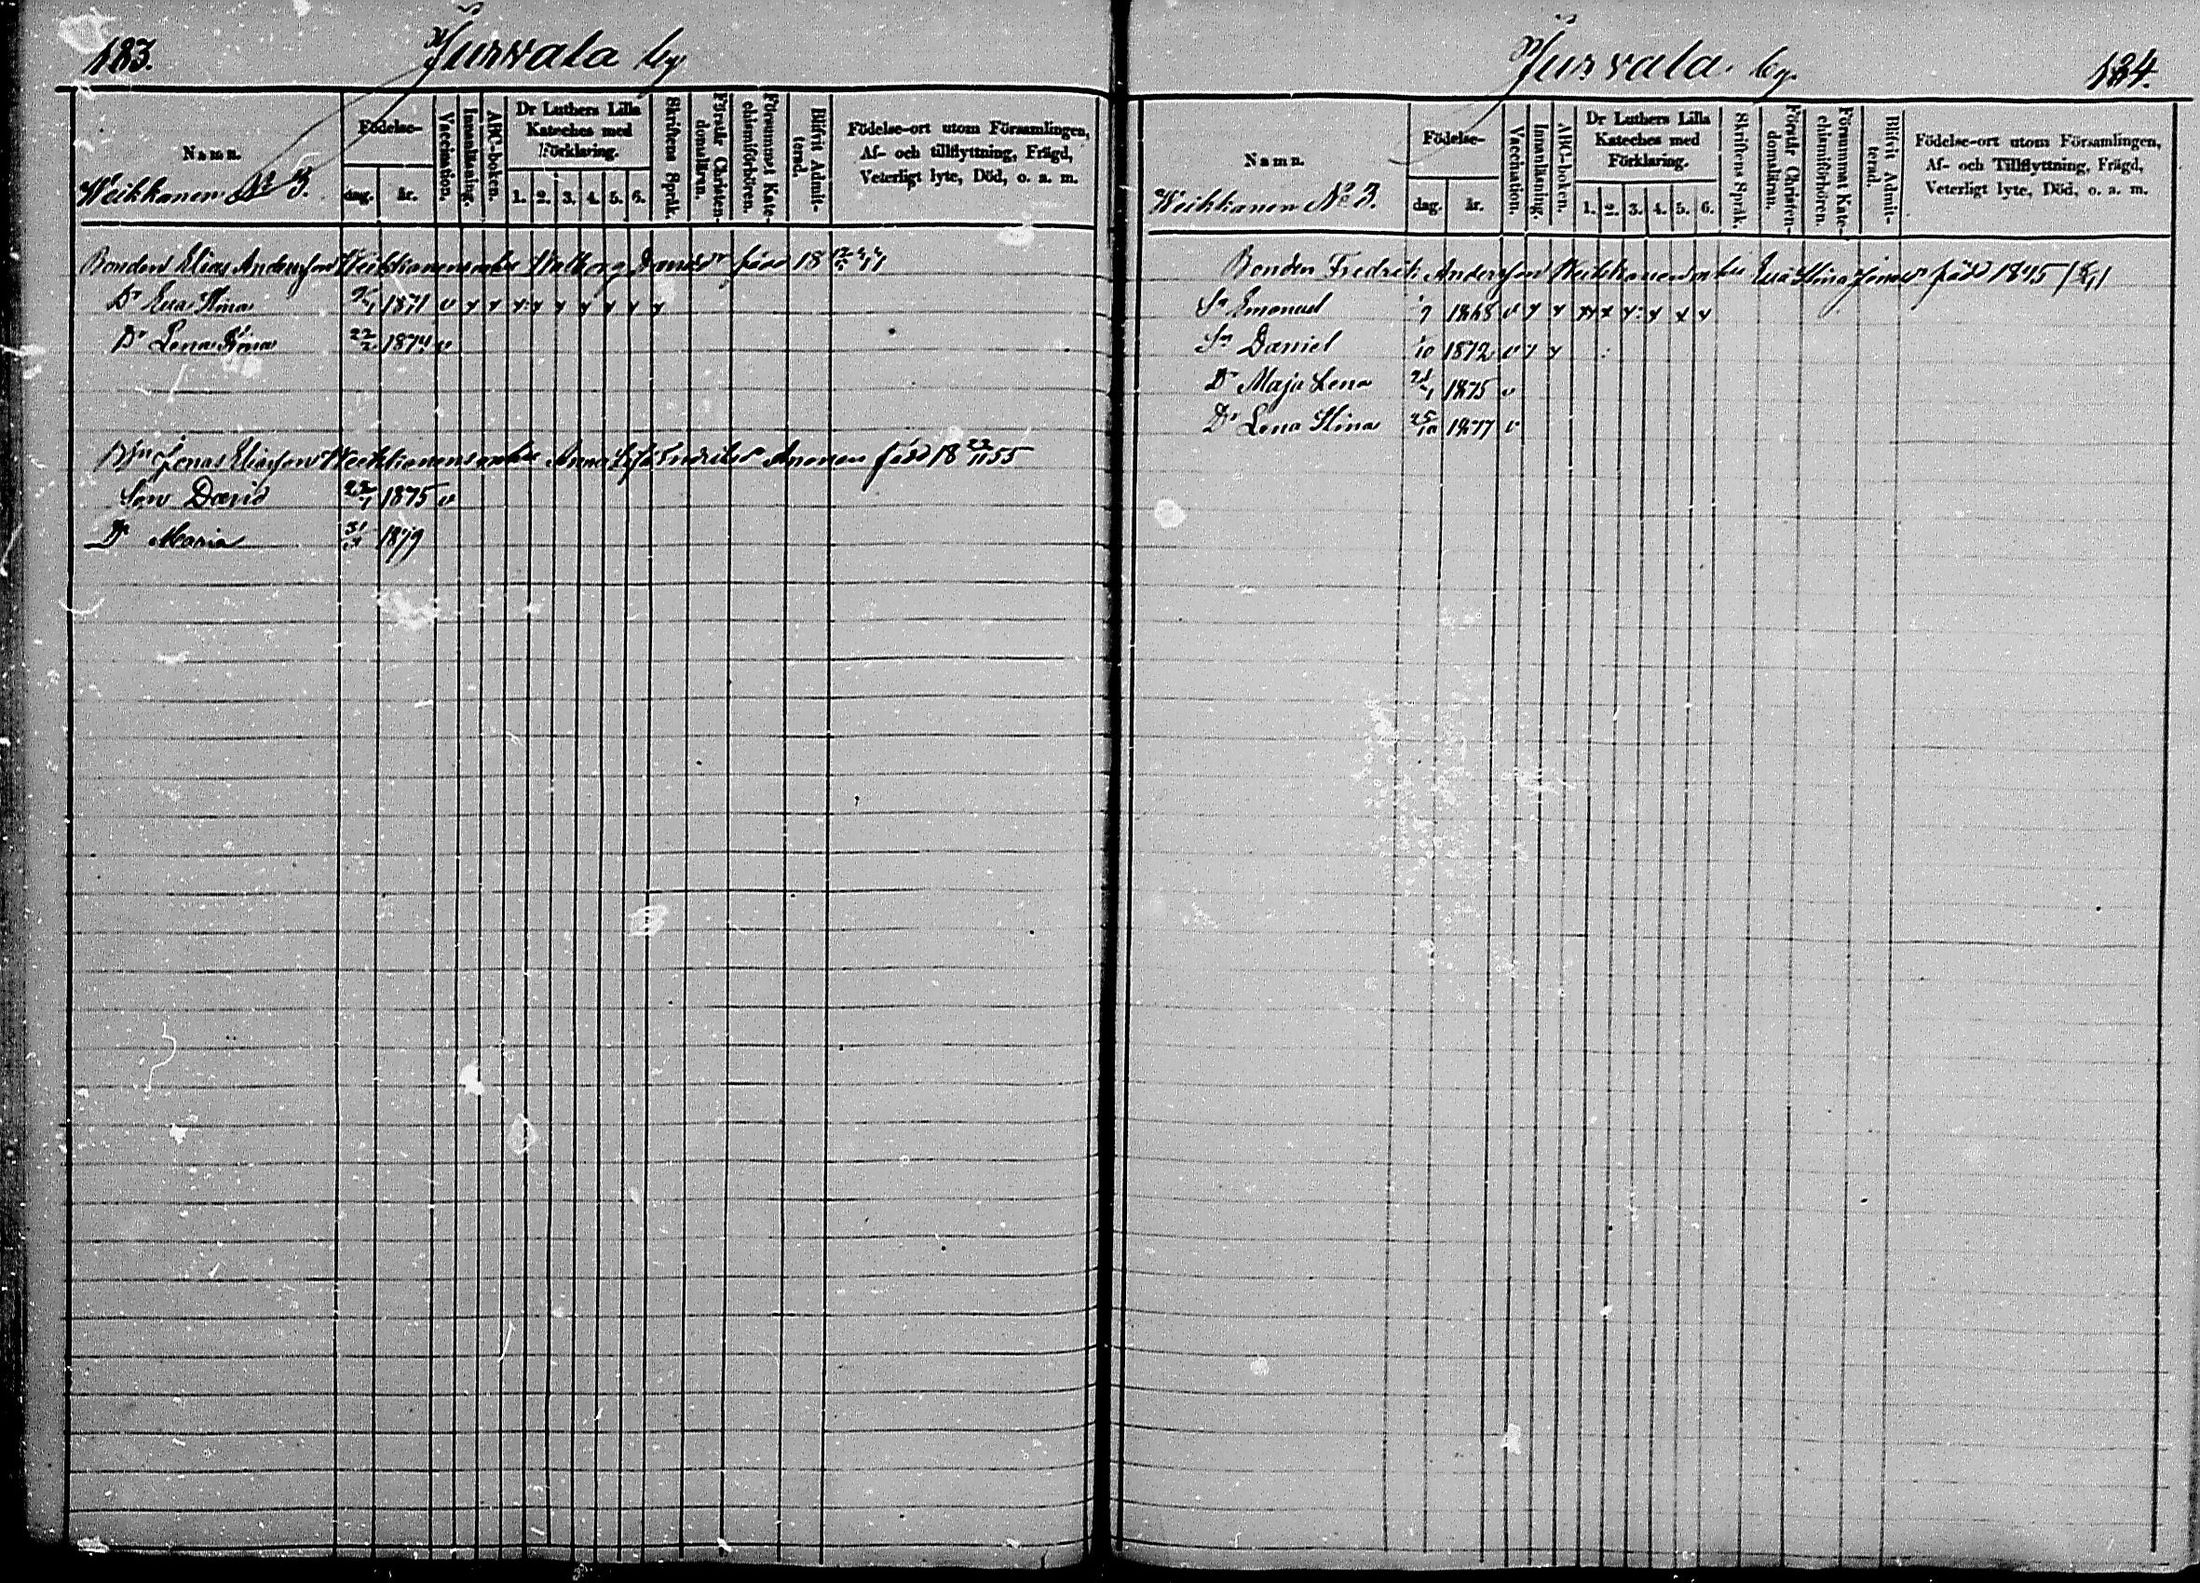 183.
Jurvala by
Namn.
Födelse-
dag.
år.
Vaccination.
Innanläsning.
ABC-boken.
Dr Luthers Lilla
Kateches med
Förklaring.
1. 2. 3. 4. 5. 6.
Skriftens Språk.
Förstår Christen-
domsläran.
Försummat Kate-
chismiförhören.
Blifvit Admit-
terad.
Födelse-ort utom Församlingen,
Af- och tillflyttning, Frägd,
Veterligt lyte, Död, o. a. m.
Weikkanen No 3.
Bonden Elias Andersson Weikkanens enka Walborg född 18
Dr Eva Stina 1871 v
Dr Lena Stina 22/2 1874 v
Jonas Eliasson Weikkanens enka Anna född 18 22/11 55
Son David 1875 v
Dr Maria 1879
Jurvala by.
184.
Namn.
Födelse-
dag.
år.
Vaccination.
Innanläsning.
ABC-boken.
Dr Luthers Lilla
Kateches med
Förklaring.
1. 2. 3. 4. 5. 6.
Skriftens Språk.
Förstår Christen-
domsläran.
Försummat Kate-
chismiförhören.
Blifvit Admit-
terad.
Födelse-ort utom Församlingen,
Af- och Tillflyttning, Frägd,
Veterligt lyte, Död, o. a. m.
Weikkanen No 3.
Bonden Fredrik Andersson Weikkanens enka Eva Stina född 1845
Sn Emanuel 1868 v
Sn Daniel 1872 v
Dr Maja Lena 1875 v
Dr Lena Stina 25/10 1877 v